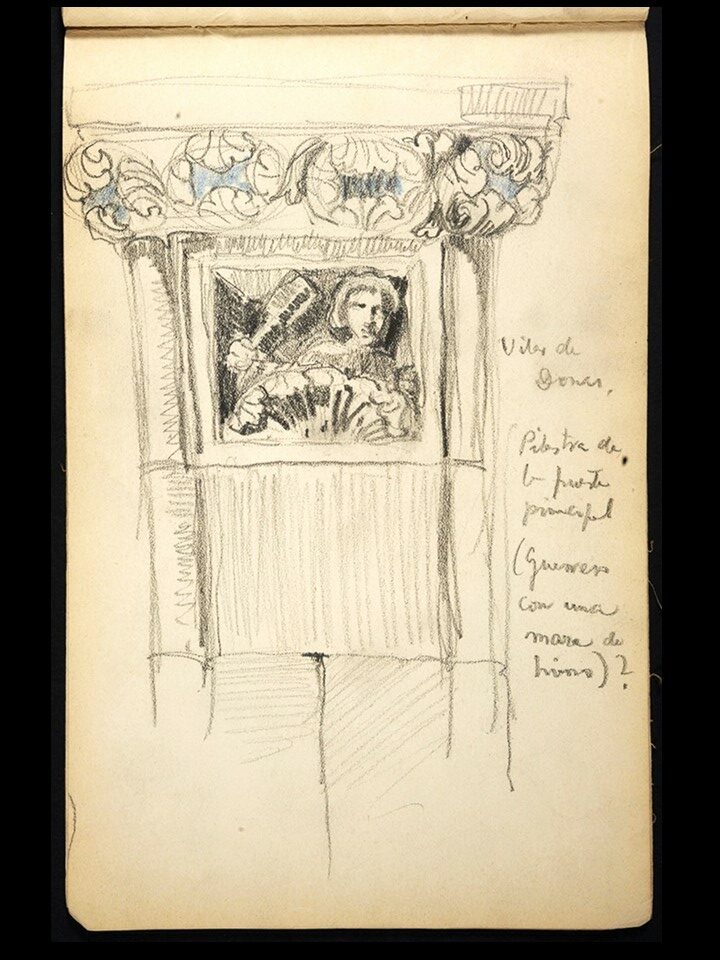 Vilar de
Donas.
Pilastra de
la puerta
principal
(Guerrero
con una
maza de
hierro)?